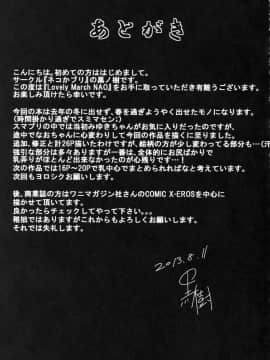 あとがき
こんにちは。初めての方ははじめまして。
サークル『ネコカブリ』の黒ノ樹です。
この度は『Lovely March NAO』をお手に取っていただき有難うございます。
お楽しみ頂けたら幸いです。
今回の本は去年の冬に出せず、春を過ぎようやく出せたモノになります。
(時間掛かり過ぎでスミマセン)
スマプリの中では当初みゆきちゃんがお気に入りだったのですが、
途中でなおちゃんに心変わりして今回の作品を描くに至りました。
追加、修正と計26P描いたわけですが、絵柄の方が少し変わってる部分も…(汗
強引な部分が多々ありますが一番は、全体的にお尻ばかりで
乳弄りがほとんど出来なかったのが心残りです…!
次の作品では16P~20Pで乳中心でまとめられればと思ってます。
今回もヨロシクお願いします。
後、商業誌の方はワニマガジン社さんのCOMIC X-EROSを中心に
描かせて頂いてます。
良かったらチェックしてやって下さい。。。
至らぬ部分もありますがこれからもよろしくお願いします。
それでは失礼します。
2013.8.11
黒ノ樹